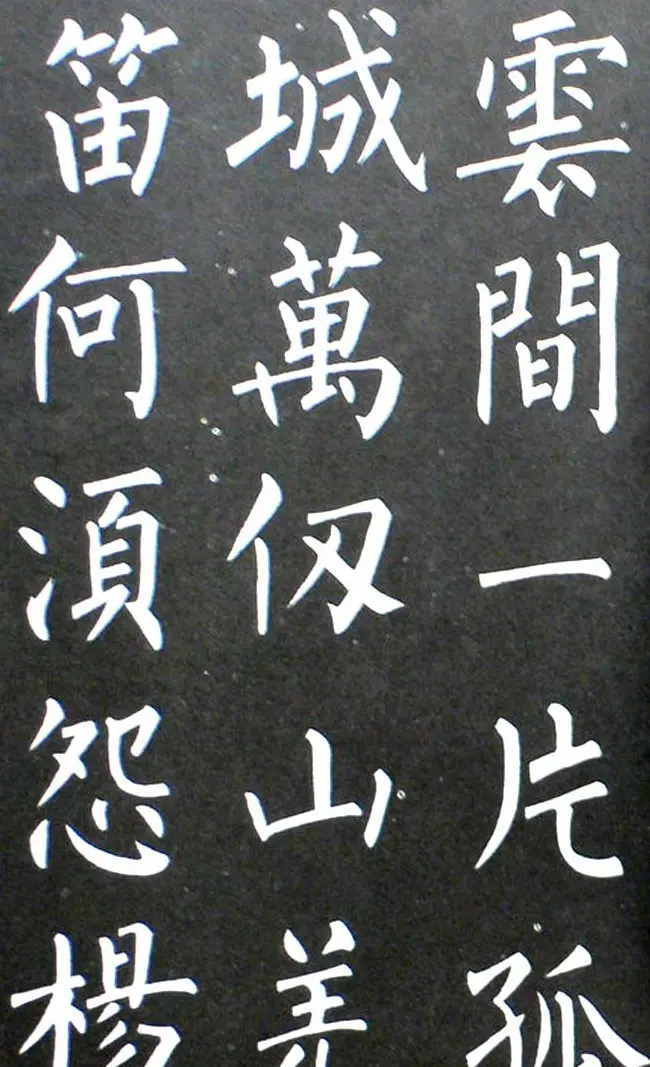 雲間一片孤
城萬仞山羌
笛何湏怨楊